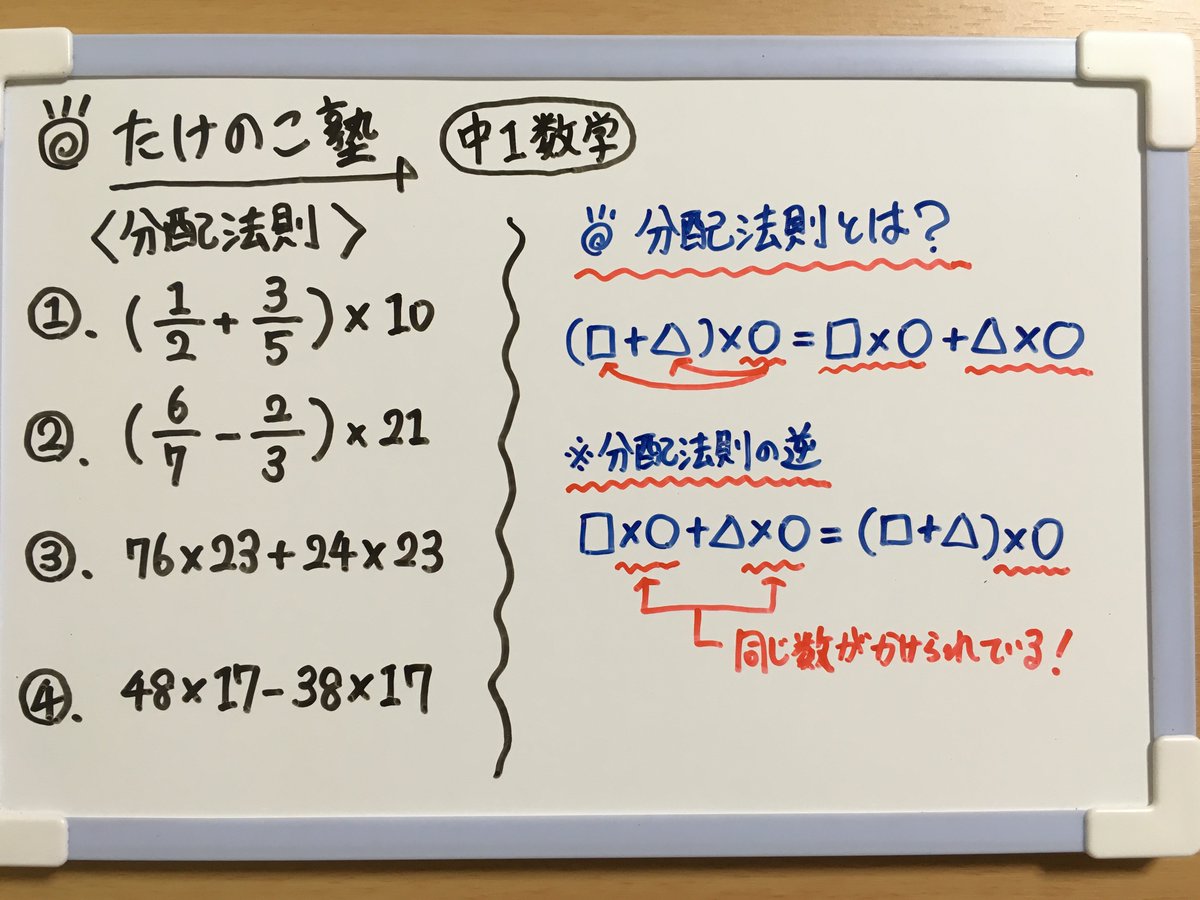 たけのこ塾
中1数学
〈分配法則〉
①. (1/2 + 3/5) × 10
②. (6/7 - 2/3) × 21
③. 76×23+24×23
④. 48×17-38×17
分配法則とは?
(□+△)×○=□×○+△×○
※分配法則の逆
□×○+△×○=(□+△)×○
同じ数がかけられている!